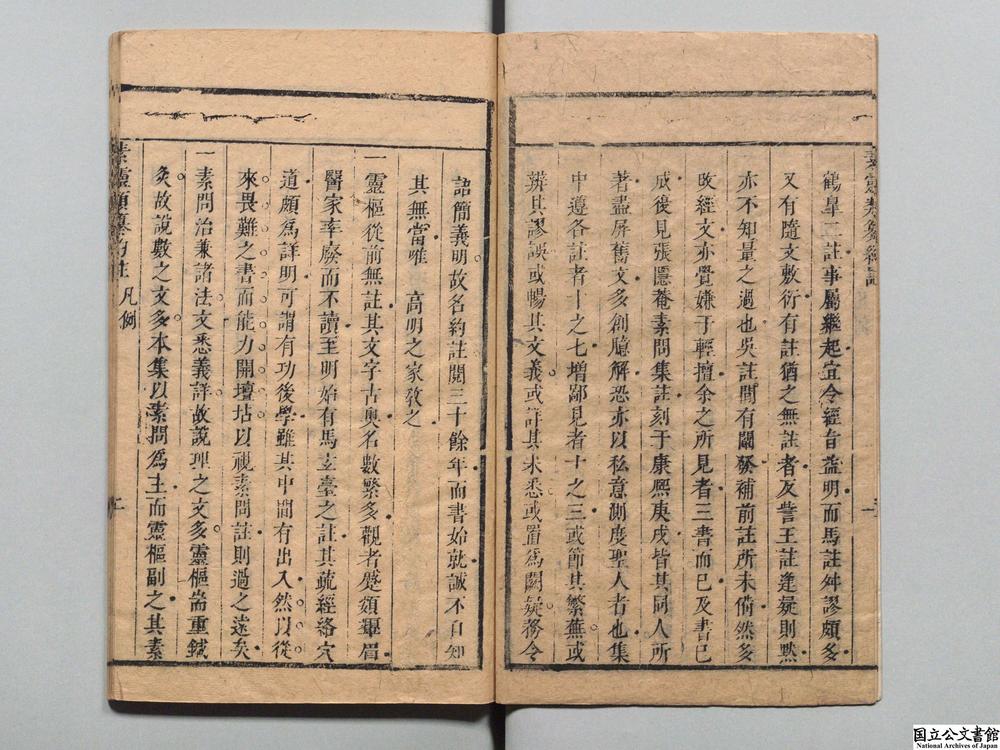 鶴皐二註事屬繼起宜令經旨益明而馬註舛謬頗多
又有隨文敷衍有註猶之無註者反訾王註逢疑則默
亦不知量之過也吳註間有闡發補前註所未備然多
改經文亦覺嫌于輕擅余之所見者三書而已及書已
成後見張隱菴素問集註刻于康熙庚戌皆其同人所
著盡屏舊文多創臆解恐亦以私意測度聖人者也集
中遵各註者十之七增鄙見者十之三或節其繁蕪或
辨其謬誤或暢其文義或詳其未悉或置爲闕疑務令
語簡義明故名約註閱三十餘年而書始就誠不自知
其無當唯　高明之家敎之
一靈樞從前無註其文字古奧名數繁多觀者蹙頞顰眉
醫家率廢而不讀至明始有馬玄臺之註其疏經絡穴
道頗爲詳明可謂有功後學雖其中間有出入然以從
來畏難之書而能力開壇坫以視素問註則過之遠矣
一素問治兼諸法文悉義詳故說理之文多靈樞耑重鍼
灸故說數之文多本集以素問爲主而靈樞副之其素
素靈類纂約註　凡例
二
国立公文書館
National Archives of Japan